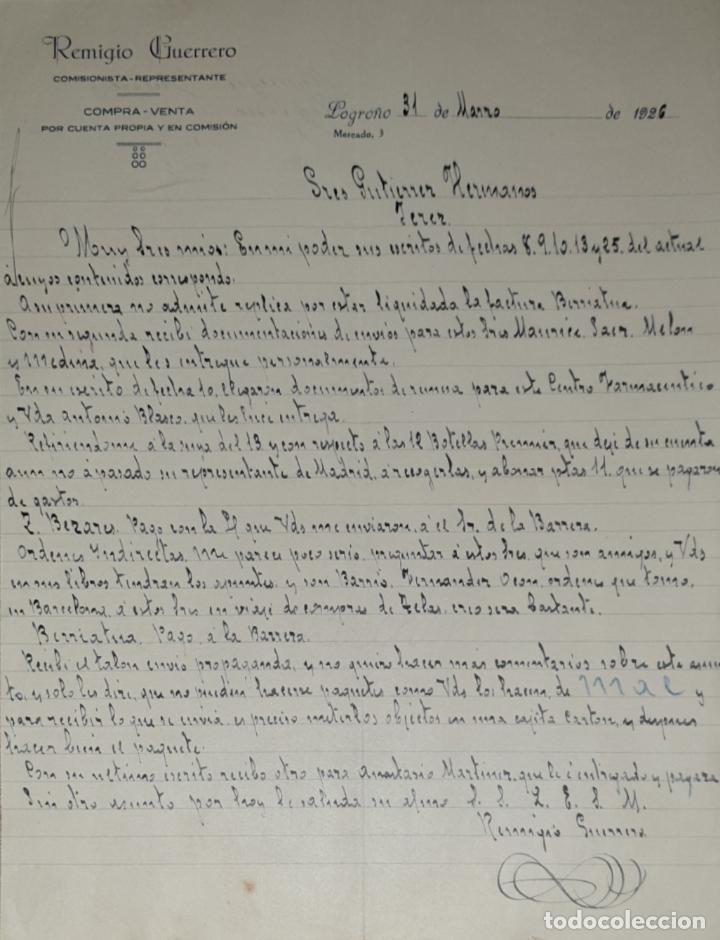 Remigio Guerrero
COMISIONISTA-REPRESENTANTE
COMPRA-VENTA
POR CUENTA PROPIA Y EN COMISIÓN
Logroño 31 de Marzo de 1926
Mercado, 3
Sres Gutierrez Hermanos
Jerez
Muy Sres mios: En mi poder sus escritos de fechas 8. 9. 10. 13 y 25. del actual
á cuyos contenidos correspondo.
A su primera no admite replica por estar liquidada la factura Berriatua.
Con su segunda recibi documentacions de envios para estos Sres Maurice, Saez, Melon
y Medina, que les entregue personalmente.
En su escrito de fecha 10, llegaron documentos de remesa para este Centro Farmaceutico
y Vda Antonio Blasco, que les hice entrega.
Refiriendome á la suya del 13 y con respecto á las 12 Botellas Premier, que deje de su cuenta
aun no á pasado su representante de Madrid, á recogerlas, y abonar ptas 11. que se pagaron
de gastos.
Z. Bezares. Pago con la que Vds me enviaron, á el Sr. de la Barrera.
Ordenes Yndirectas. Me parece poco serio preguntar á estos Sres, que son amigos, y Vds
en sus libros tendran los apuntes, y son Barrio, Fernandez Ocon, ordenes que tomo,
en Barcelona, á estos Sres en viaje de compras de Telas, creo sera bastante.
Berriatua. Pago, á la Barrera.
Recibi el talon envio propaganda, y no quiero hacer mas comentarios sobre este asun
to, y solo les dire, que no pueden hacerse paquetes como Vds los hacen, de mal y
para recibir lo que se envia, es precio meter los objectos en una cajita carton, y despues
hacer bien el paquete.
Con su ultimo escrito recibo otro para Anastasio Martinez, que le é entregado y pagara
Sin otro asunto por hoy le saluda su afmo S. S. Q. E. S. M.
Remigio Guerrero
todocoleccion